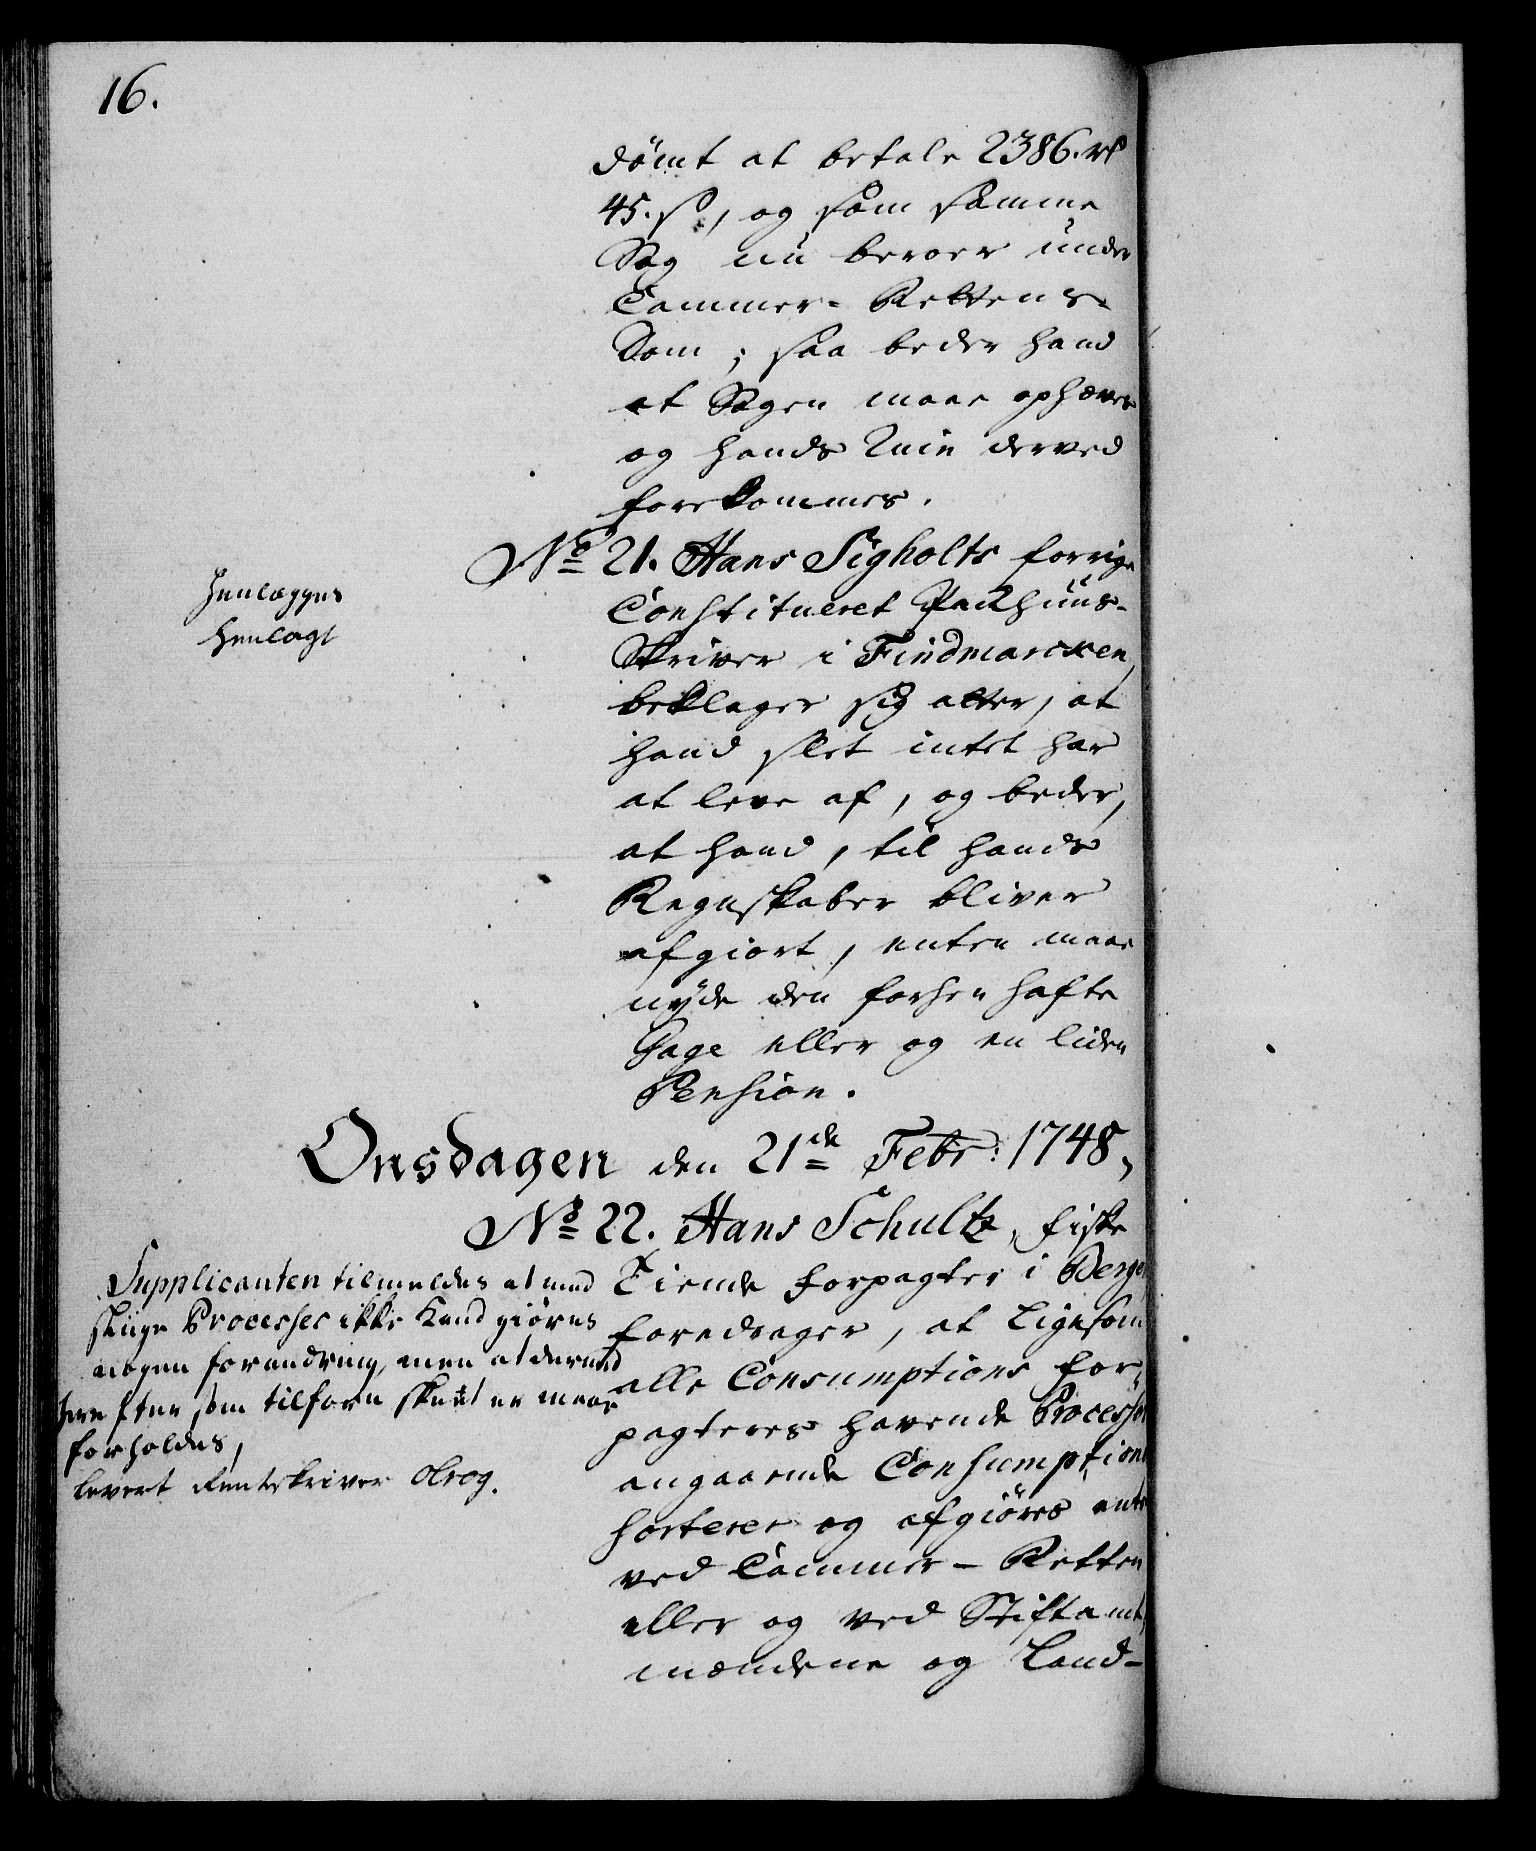 16.
dömt at betale 2386. rd
45. s, og som samme
Sag nu beroer under
Cammer-Rettens
Dom; saa beder hand
at Sagen maae ophæves
og hands Ruin derved
forekommes.
No 21. Hans Sigholts forrige
Constitueret Packhuus-
Skriver i Findmarcken,
beklager sig atter, at
hand slet intet har
at leve af, og beder,
at hand, til hands
Regnskaber bliver
afgiort, enten maae
nyde den forhen hafte
Gage eller og en liden
Pension.
Henlægges
henlagt
Onsdagen den 21de Febr: 1748,
No 22. Hans Schultz, Fiske
Tiende Forpagter i Bergen
foredrager, at Ligesom
alle Consumptions For-
pagteres havende Processer
angaaende Consumptionen
sorterer og afgiöres enten
ved Cammer-Retten
eller og ved Stiftamt-
mændene og Land-
Supplicanten tilmeldes at med
slige Processer ikke Kand giöres
nogen forandring, men at dermed
herefter som tilforn skeet er maae
forholdes,
levert Renteskriver Olrog.